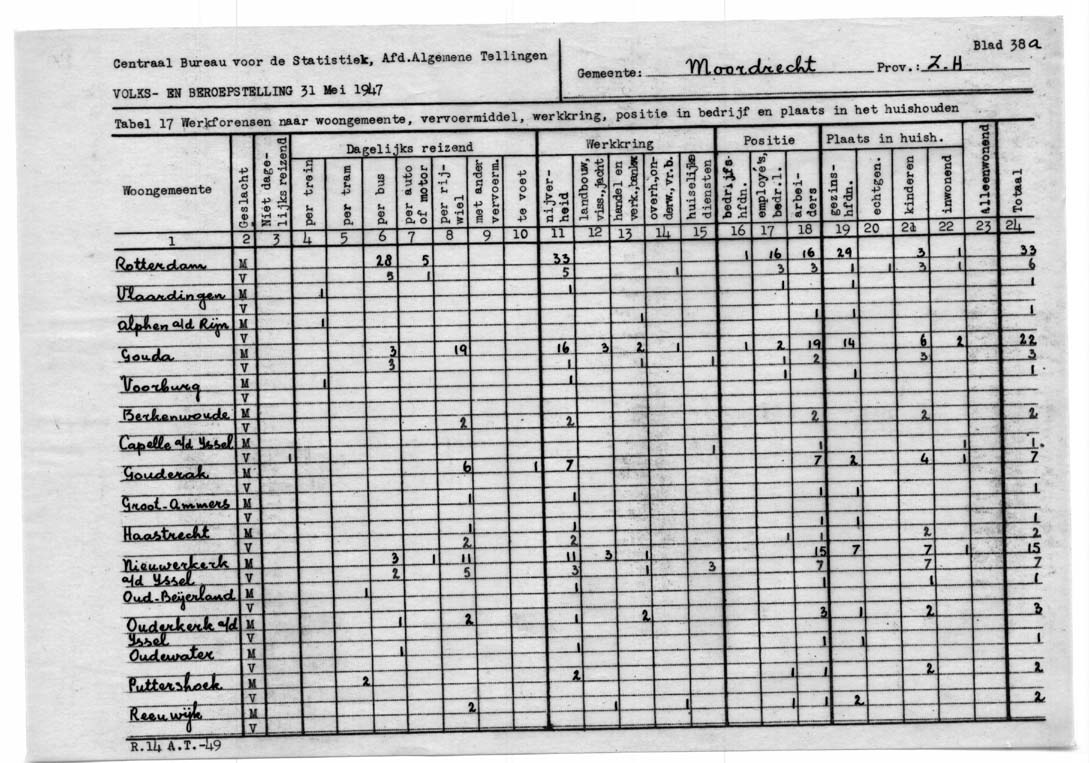 Blad 38a
Centraal Bureau voor de Statistiek, Afd.Algemene Tellingen
Gemeente: Moordrecht Prov.: Z.H
VOLKS- EN BEROEPSTELLING 31 Mei 1947
Tabel 17 Werkforensen naar woongemeente, vervoermiddel, werkkring, positie in bedrijf en plaats in het huishouden
Woongemeente Geslacht Niet dagelijks reizend Dagelijks reizend Werkkring Positie Plaats in huish. Alleenwonend Totaal
per trein per tram per bus per auto of motor per rijwiel met ander vervoerm. te voet nijverheid landbouw, viss.,jacht handel en verk.,bankw. overh.,onderw.,vr.b. huiselijke diensten bedrijfshfdn. employé's, bedr.l. arbeiders gezinshfdn. echtgen. kinderen inwonend
1 2 3 4 5 6 7 8 9 10 11 12 13 14 15 16 17 18 19 20 21 22 23 24
Rotterdam M 28 5 33 1 16 16 29 3 1 33
V 5 1 5 1 3 3 1 1 3 1 6
Vlaardingen M 1 1 1 1 1
V
Alphen a/d Rijn M 1 1 1 1 1
V
Gouda M 3 19 16 3 2 1 1 2 19 14 6 2 22
V 3 1 1 1 1 2 3 3
Voorburg M 1 1 1 1 1
V
Berkenwoude M 2 2 2 2 2
V
Capelle a/d Yssel M 1 1 1 1
V 1
Gouderak M 6 1 7 7 2 4 1 7
V
Groot-Ammers M 1 1 1 1 1
V
Haastrecht M 1 1 1 1 1
V 2 2 1 1 2 2
Nieuwerkerk a/d Yssel M 3 1 11 11 3 1 15 7 7 1 15
V 2 5 3 1 3 7 7 7
Oud-Beijerland M 1 1 1 1 1
V
Ouderkerk a/d Yssel M 1 2 1 2 3 1 2 3
V
Oudewater M 1 1 1 1 1
V
Puttershoek M 2 2 1 1 2 2
V
Reeuwijk M 2 1 1 1 1 2 2
V
R.14 A.T.-49